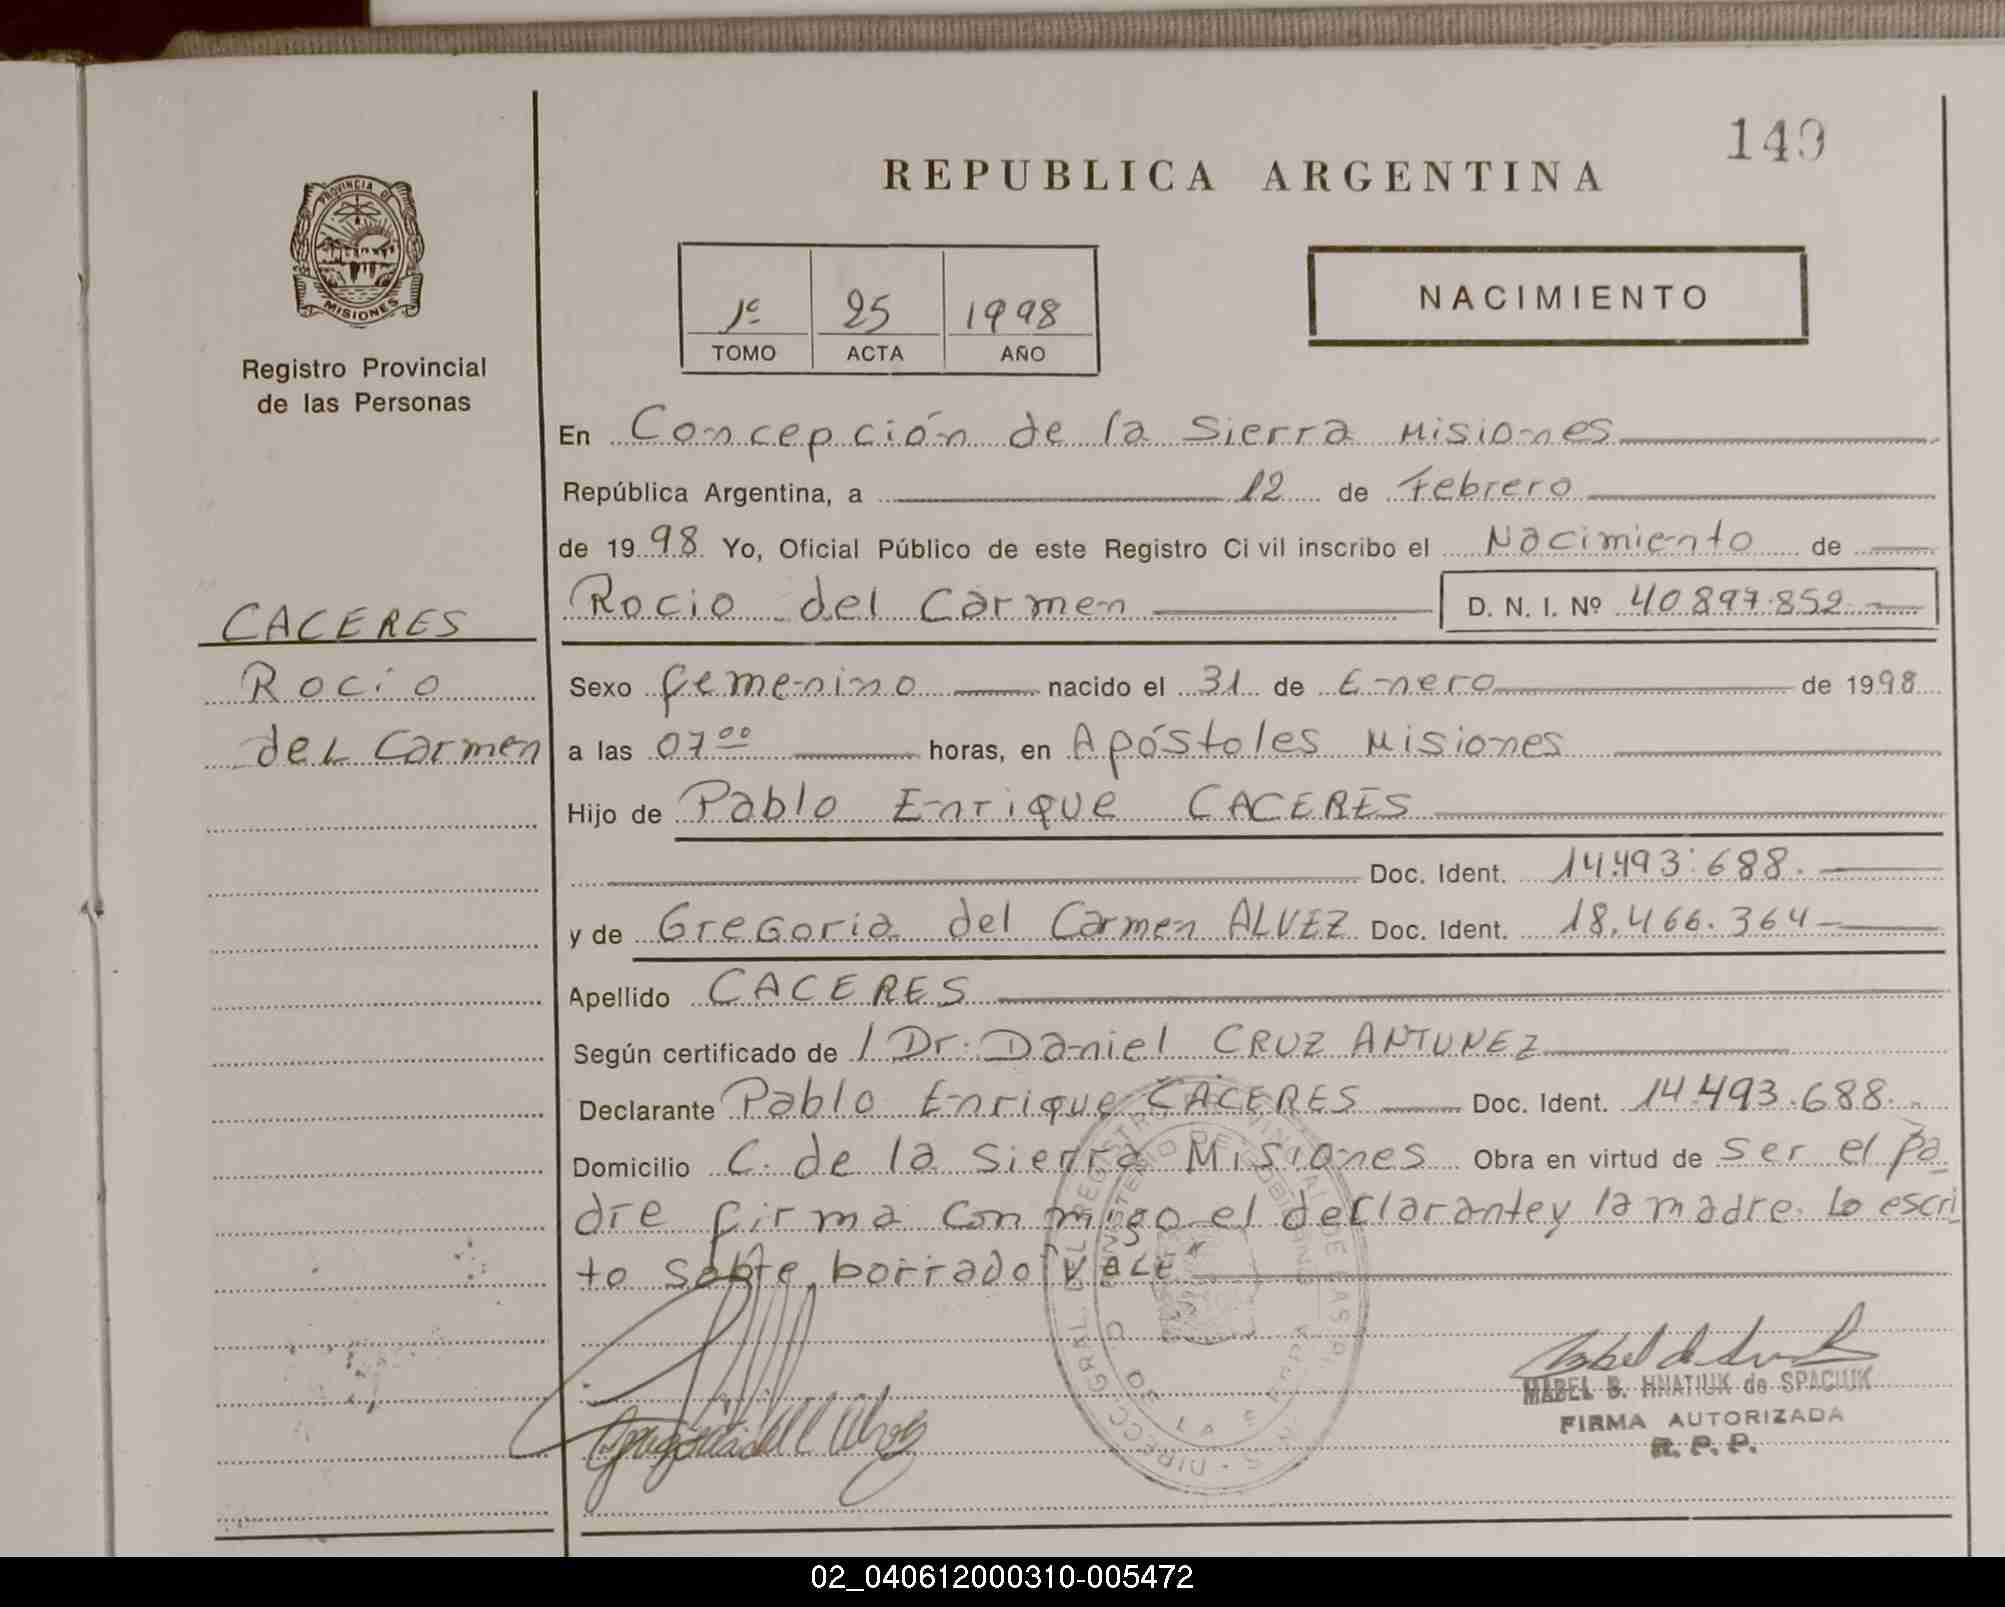 149
REPUBLICA ARGENTINA
PROVINCIA DE
MISIONES
Registro Provincial
de las Personas
1º 25 1998
TOMO ACTA AÑO
NACIMIENTO
En Concepción de la Sierra Misiones
República Argentina, a 12 de Febrero
de 1998 Yo, Oficial Público de este Registro Civil inscribo el Nacimiento de
Rocio del Carmen D. N. I. Nº 40.897.852
CACERES
Rocio
del Carmen
Sexo femenino nacido el 31 de Enero de 1998
a las 07⁰⁰ horas, en Apóstoles Misiones
Hijo de Pablo Enrique CACERES
Doc. Ident. 14.493.688.
y de Gregoria del Carmen ALVEZ Doc. Ident. 18.466.364
Apellido CACERES
Según certificado de / Dr. Daniel CRUZ ANTUNEZ
Declarante Pablo Enrique CACERES Doc. Ident. 14.493.688.
Domicilio C. de la Sierra Misiones Obra en virtud de ser el pa-
dre firma conmigo el declarante y la madre. Lo escri
to sobre borrado vale
MABEL B. HNATIUK de SPACIUK
FIRMA AUTORIZADA
R. P. P.
02_040612000310-005472